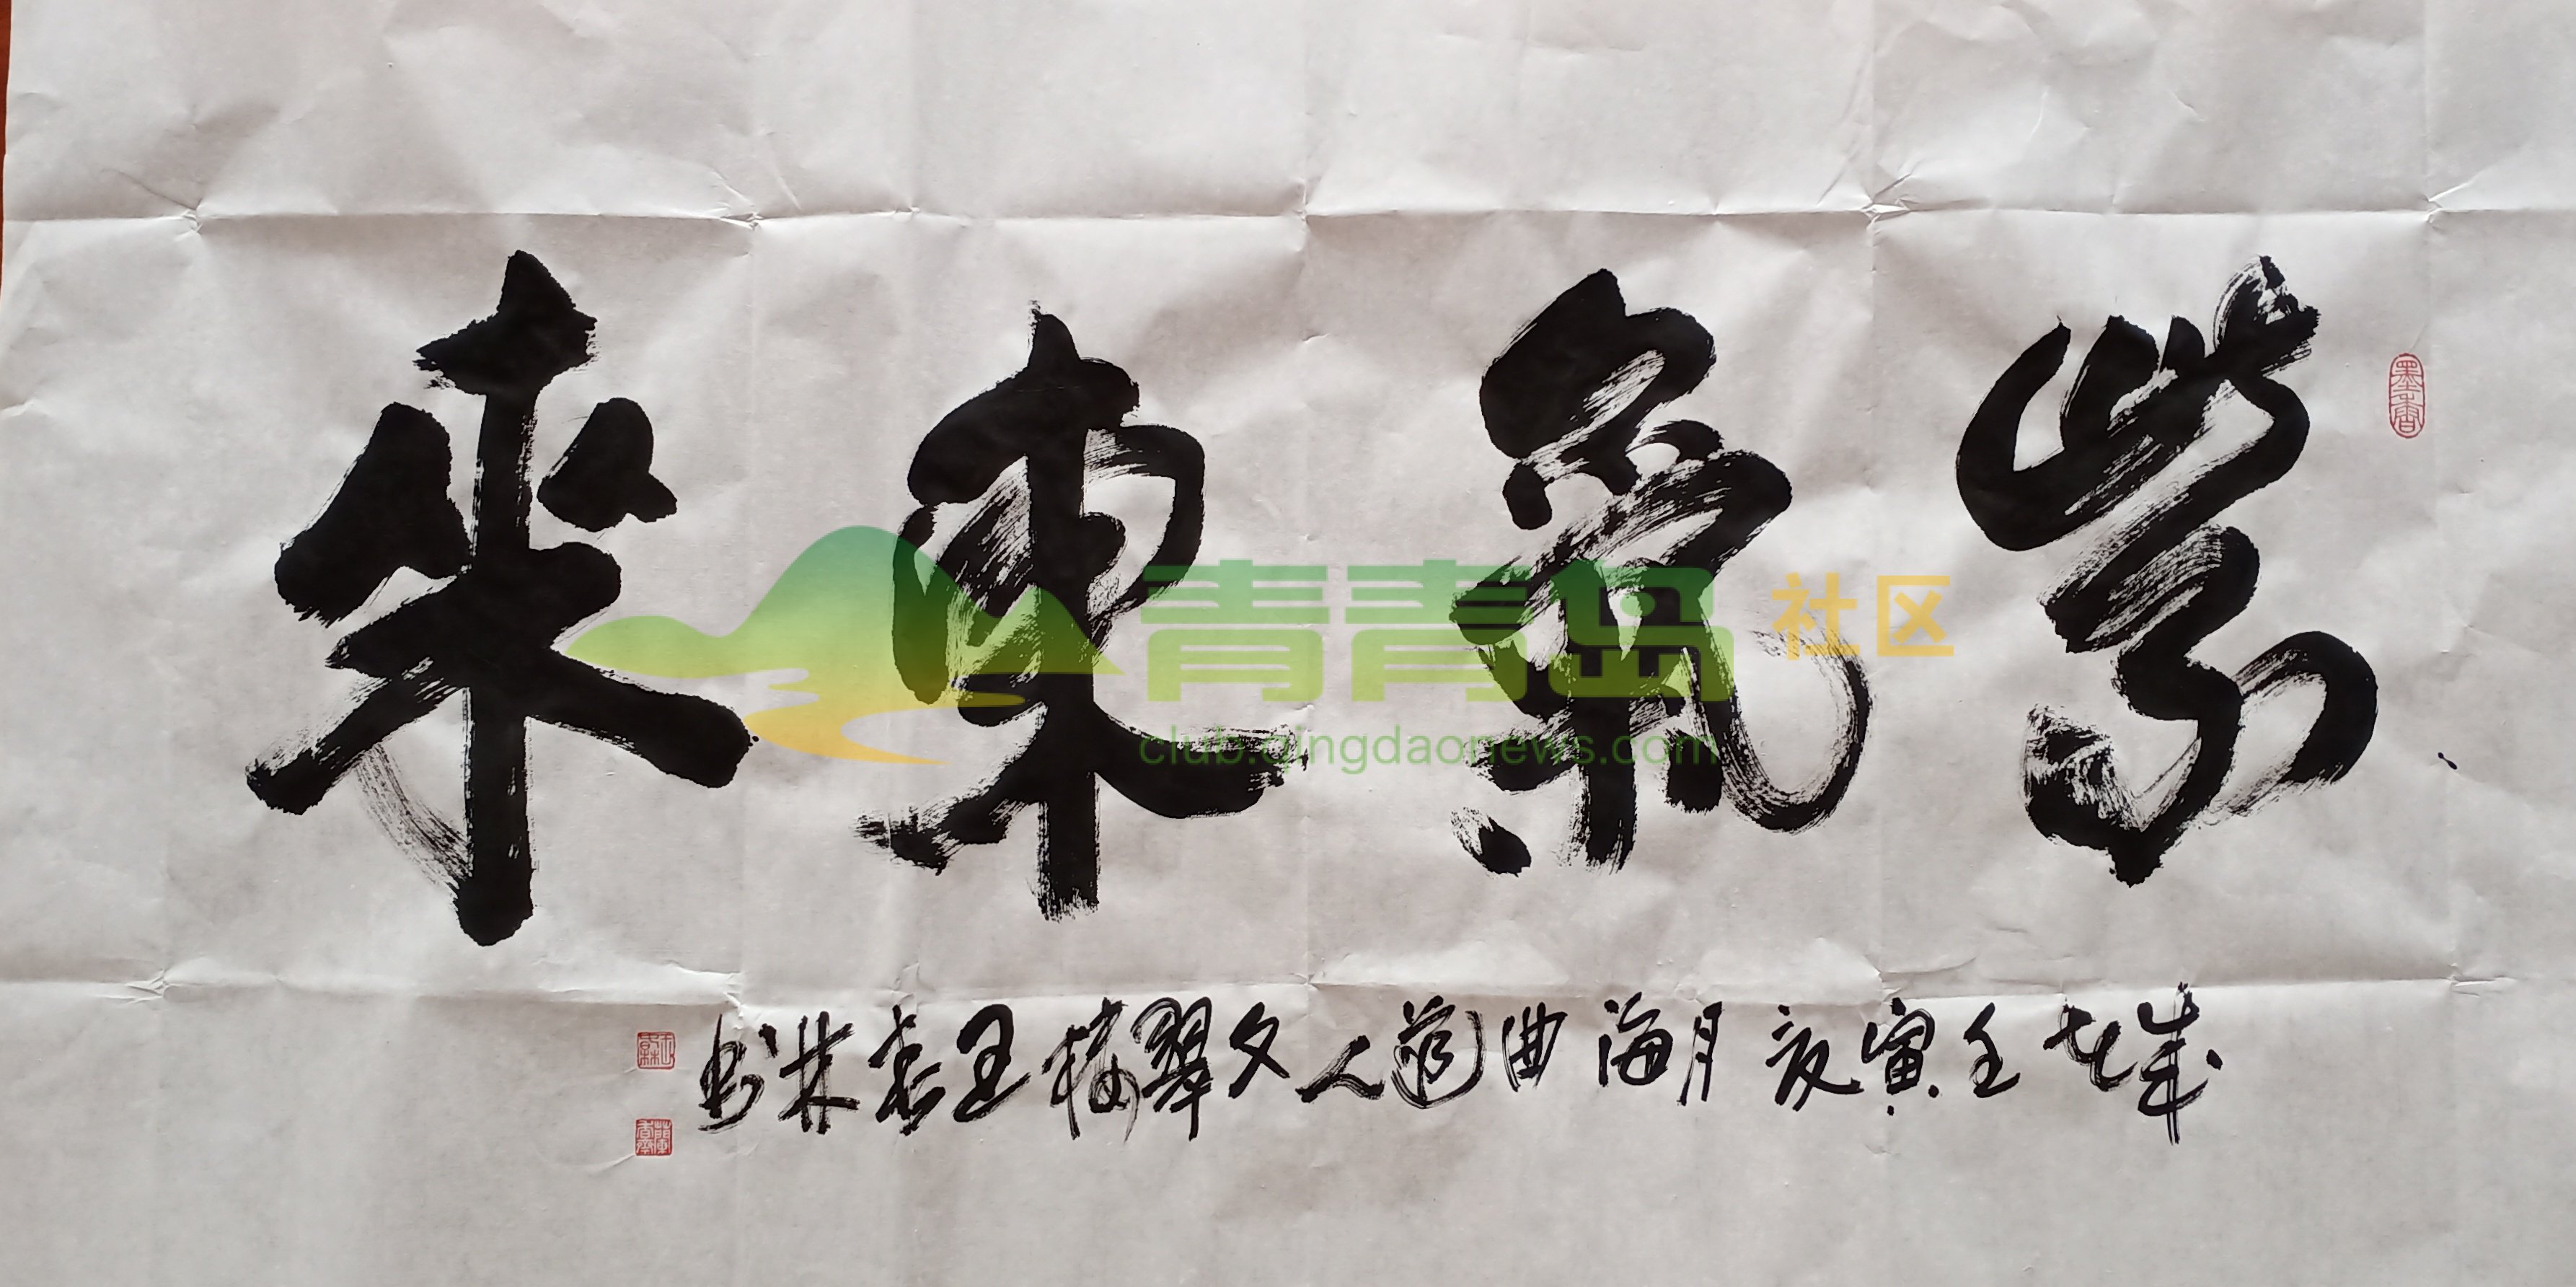 紫氣東來
歲在壬寅亥月海曲道人文翠樓王志林書
墨香
青青岛社区
club.qingdaonews.com